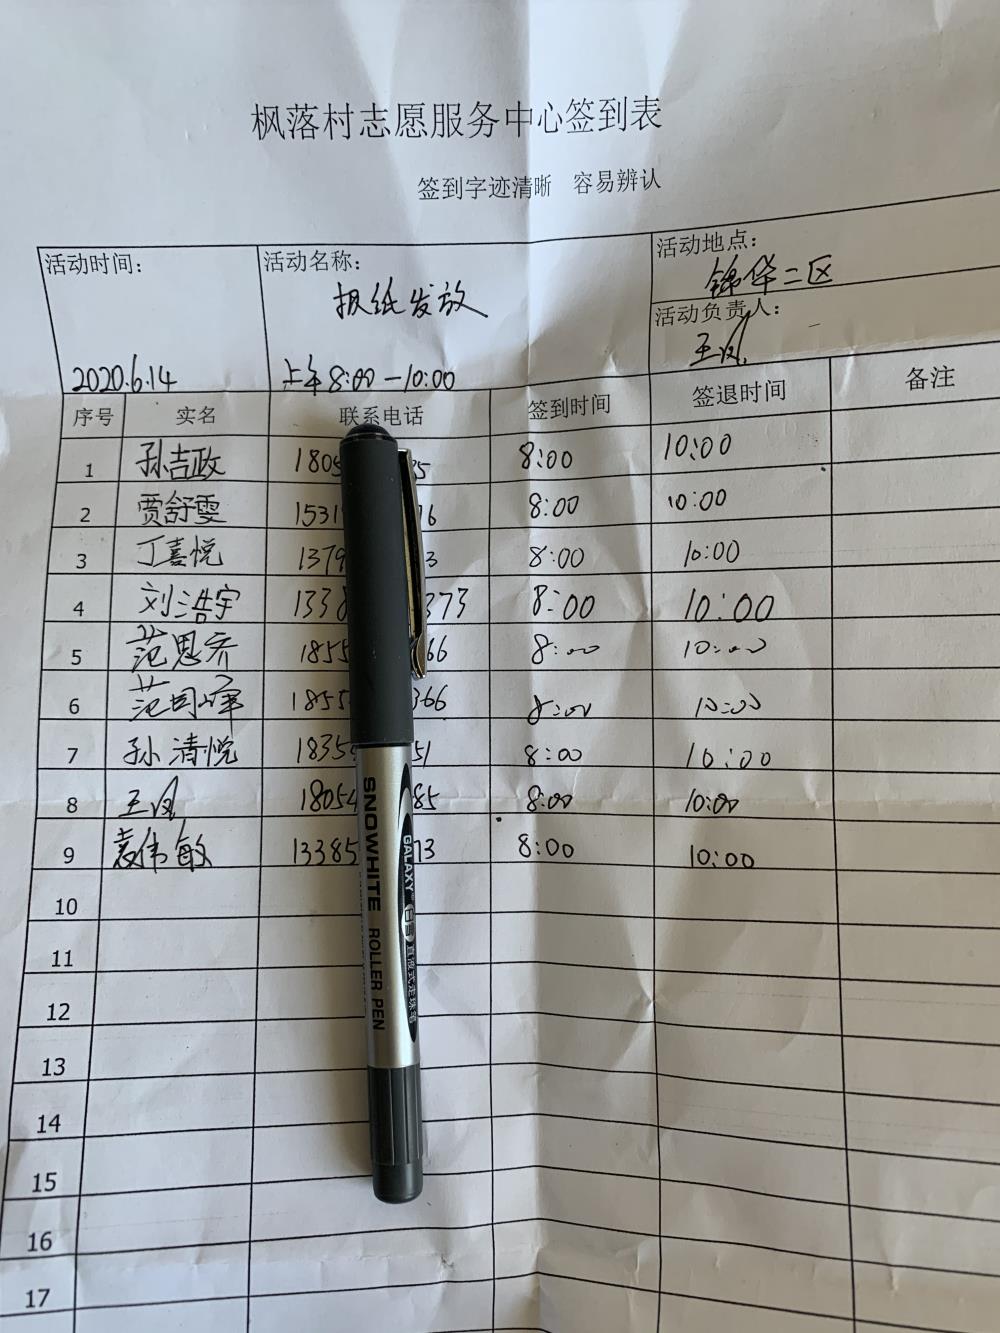 枫落村志愿服务中心签到表
签到字迹清晰 容易辨认
活动时间: 活动名称: 活动地点:
报纸发放 锦华二区
活动负责人:
王凤
2020.6.14 上午8:00-10:00
序号 实名 联系电话 签到时间 签退时间 备注
1 孙吉政 1805 35 8:00 10:00
2 贾舒雯 1531 16 8:00 10:00
3 丁喜悦 1379 3 8:00 10:00
4 刘浩宇 1338 373 8:00 10:00
5 范思乔 1855 66 8:00 10:00
6 范 峰 1855 366 8:00 10:00
7 孙清悦 1835 51 8:00 10:00
8 王凤 1805 85 8:00 10:00
9 袁伟敏 13385 73 8:00 10:00
10
11
12
13
14
15
16
17
SNOWHITE ROLLER PEN
GALAXY 白雪 直液式走珠笔